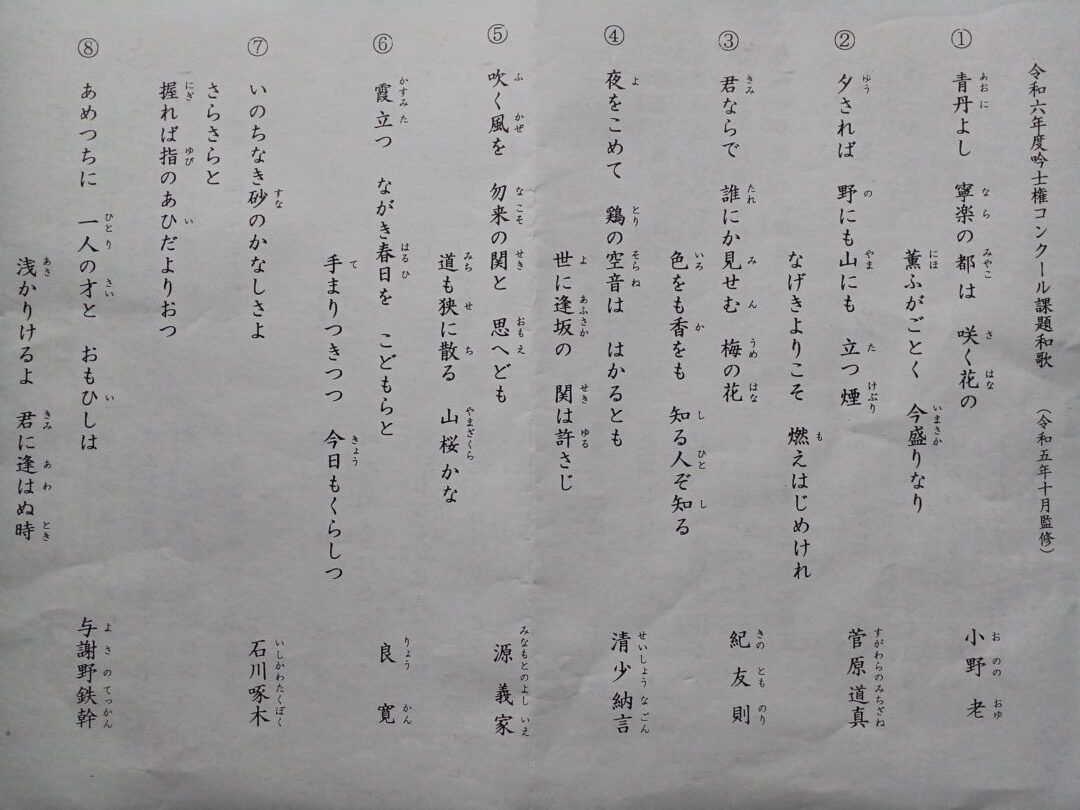 令和六年度吟士権コンクール課題和歌　（令和五年十月監修）
① 青丹よし　寧楽の都は　咲く花の
薫ふがごとく　今盛りなり
小野　老
② 夕されば　野にも山にも　立つ煙
なげきよりこそ　燃えはじめけれ
菅原道真
③ 君ならで　誰にか見せむ　梅の花
色をも香をも　知る人ぞ知る
紀　友　則
④ 夜をこめて　鶏の空音は　はかるとも
世に逢坂の　関は許さじ
清少納言
⑤ 吹く風を　勿来の関と　思へども
道も狭に散る　山桜かな
源　義　家
⑥ 霞立つ　ながき春日を　こどもらと
手まりつきつつ　今日もくらしつ
良　寛
⑦ いのちなき砂のかなしさよ
さらさらと
握れば指のあひだよりおつ
石川啄木
⑧ あめつちに　一人の才と　おもひしは
浅かりけるよ　君に逢はぬ時
与謝野鉄幹